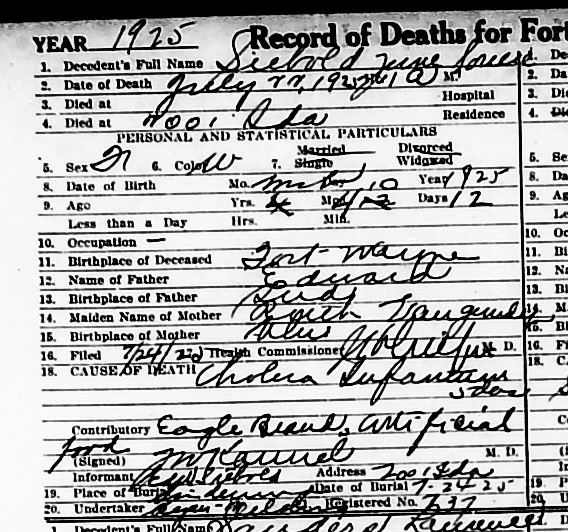 YEAR 1925 Record of Deaths for Fort
1. Decedent's Full Name Siebold June Louise
2. Date of Death July 22, 1925 1 A M.
3. Died at Hospital
4. Died at 2001 Ida Residence
PERSONAL AND STATISTICAL PARTICULARS
5. Sex F 6. Color W 7. Married Single Divorced Widowed
8. Date of Birth Mo. Day 10 Year 1925
9. Age Yrs. Mos. Days 12
Less than a Day Hrs. Min.
10. Occupation —
11. Birthplace of Deceased Fort Wayne
12. Name of Father Edward
13. Birthplace of Father Ind
14. Maiden Name of Mother
15. Birthplace of Mother
16. Filed 7/24/ Health Commissioner M. D.
18. CAUSE OF DEATH Cholera Infantum
5 days
Contributory Eagle Brand, Artificial
food
(Signed) M. D.
Informant Address 2001 Ida
19. Place of Burial Lindenwood Date of Burial 7-24-25
20. Undertaker Registered No. 737
1. Decedent's Full Name